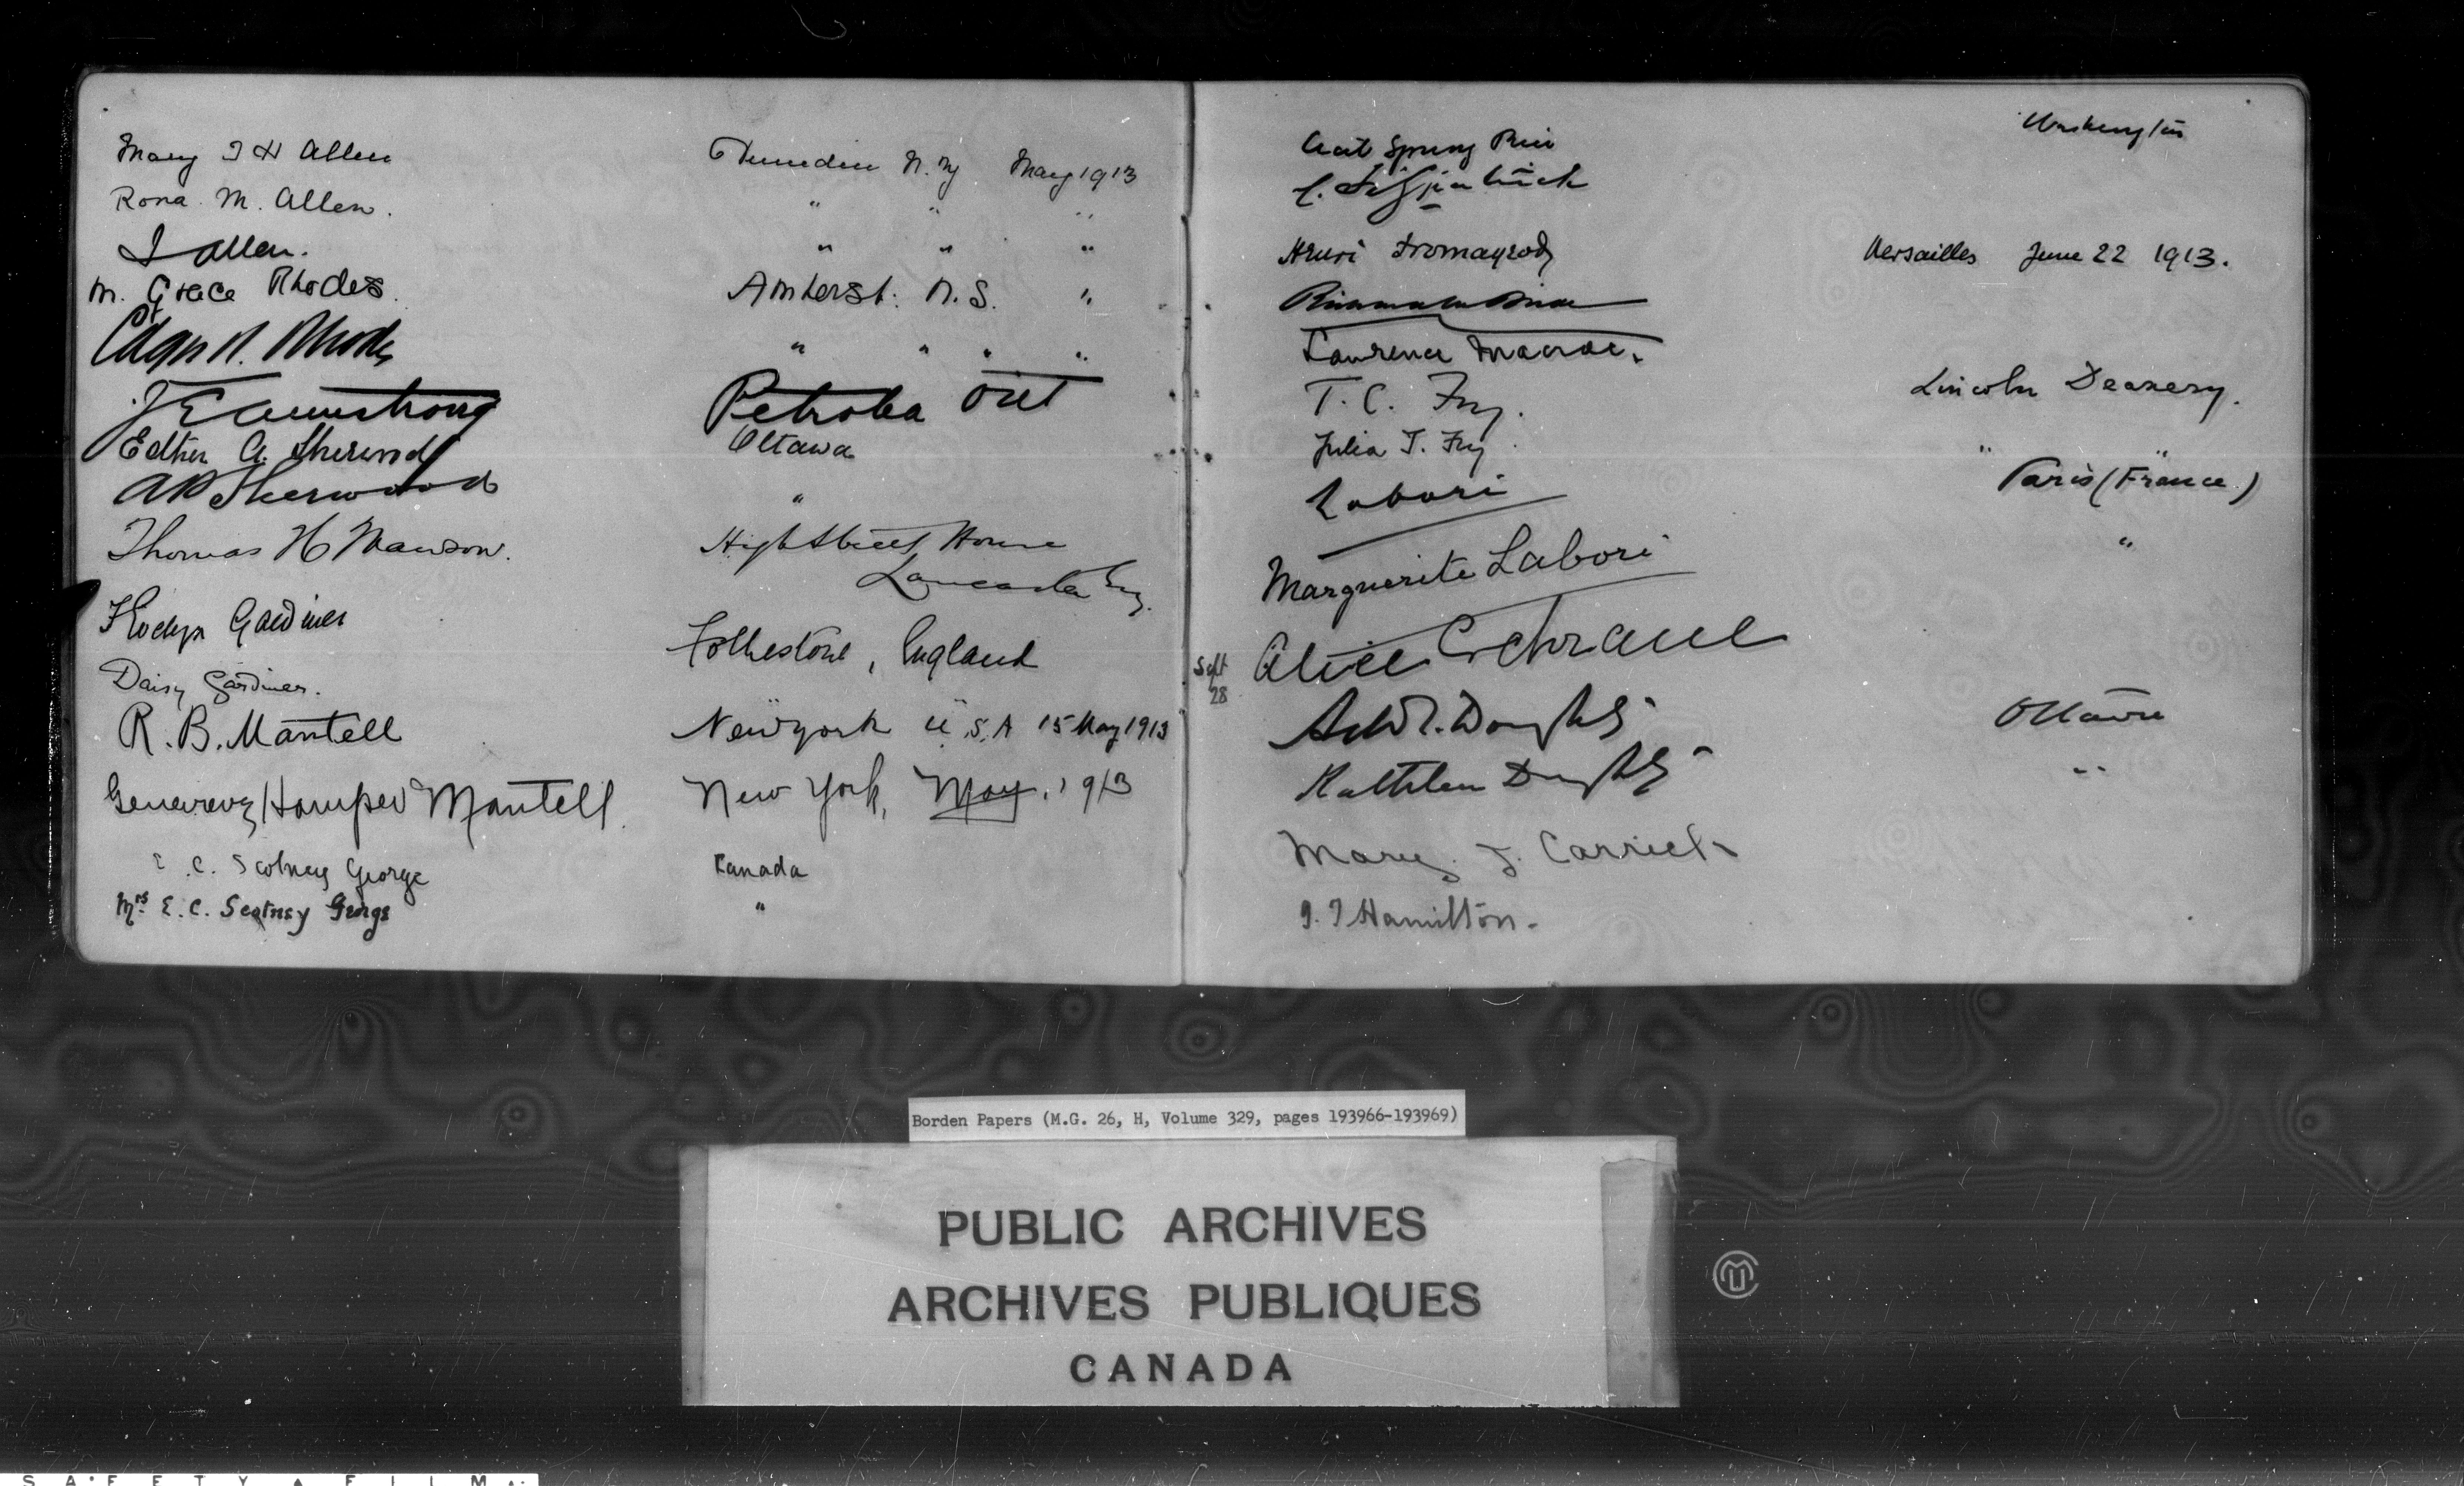 Mary J H Allen Dunedin N. Z May 1913
Rona M. Allen. " " "
J Allen. " " "
M. Grace Rhodes. Amherst. N. S. "
Edgar N. Rhodes " " " "
J E Armstrong Petrolea Ont
Esther A. Sherwood Ottawa
A P Sherwood "
Thomas H Mawson. High Street House
Lancaster Eng.
Evelyn Gardiner Folkestone, England
Daisy Gardiner.
R. B. Mantell New York U.S.A 15 May 1913
Genevieve Hamper Mantell New York, May, 1913
E. C. Scotney George Canada
Mrs E. C. Scotney George "
Washington
Cecil Spring Rice
Henri Fromageot Versailles June 22 1913.
Lawrence Macrae.
T. C. Fry. Lincoln Deanery.
Julia T. Fry. " "
Labori Paris (France)
Marguerite Labori "
Sept 28
Alice Cochrane
Arthur G. Doughty Ottawa
Kathleen Doughty "
Mary J. Carrick
Hamilton.
Borden Papers (M.G. 26, H, Volume 329, pages 193966-193969)
PUBLIC ARCHIVES
ARCHIVES PUBLIQUES
CANADA
SAFETY FILM